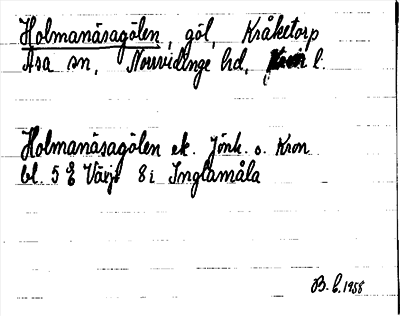 Holmanäsagölen, göl, Kråketorp
Asa sn, Norrvidinge hd, Kron l.
Holmanäsagölen ek. Jönk. o. Kron
bl. 5 E Växjö 8 i Inglamåla
B. C. 1958